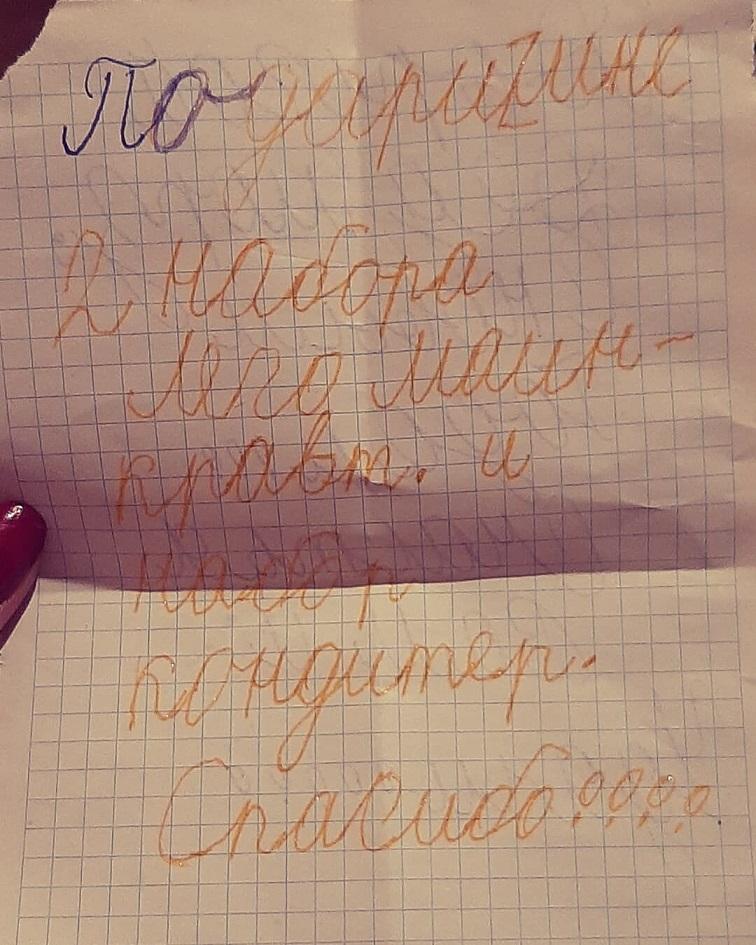 По-дари мне
2 набора
лего маин-
кравт. и
набор
кондитер.
Спасибо!!!!